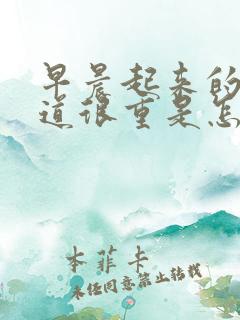 早晨起来的
道很重是怎
本菲卡
未经同意禁止转载